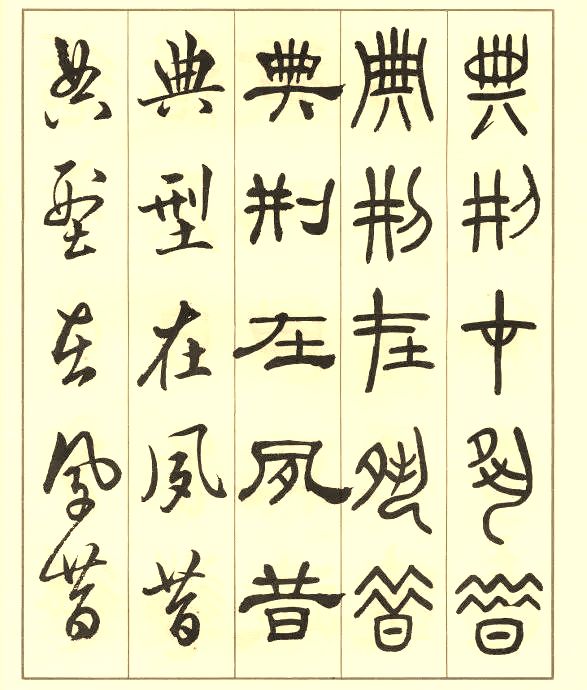 典刑在夙昔
典刑在夙昔
典刑在夙昔
典型在夙昔
典型在夙昔